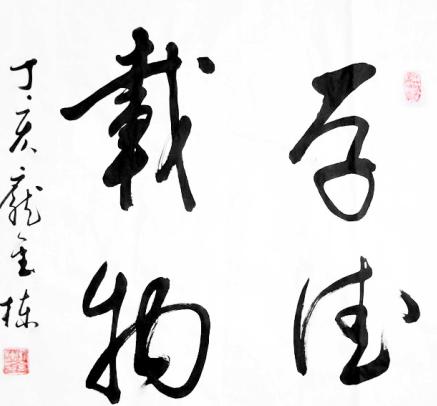 厚德
載物
丁亥龐金棟